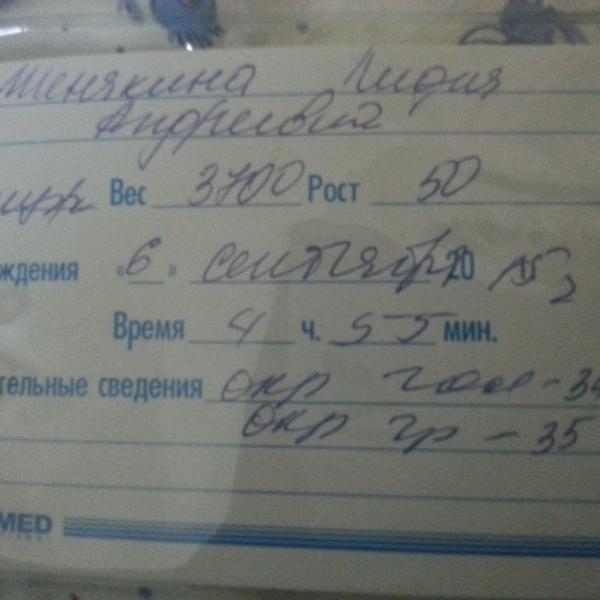 Лидия
Андреевна
муж Вес 3700 Рост 50
ждения «6» сентября 20 15 г
Время 4 ч. 55 мин.
тельные сведения окр гол - 34
окр гр - 35
MED